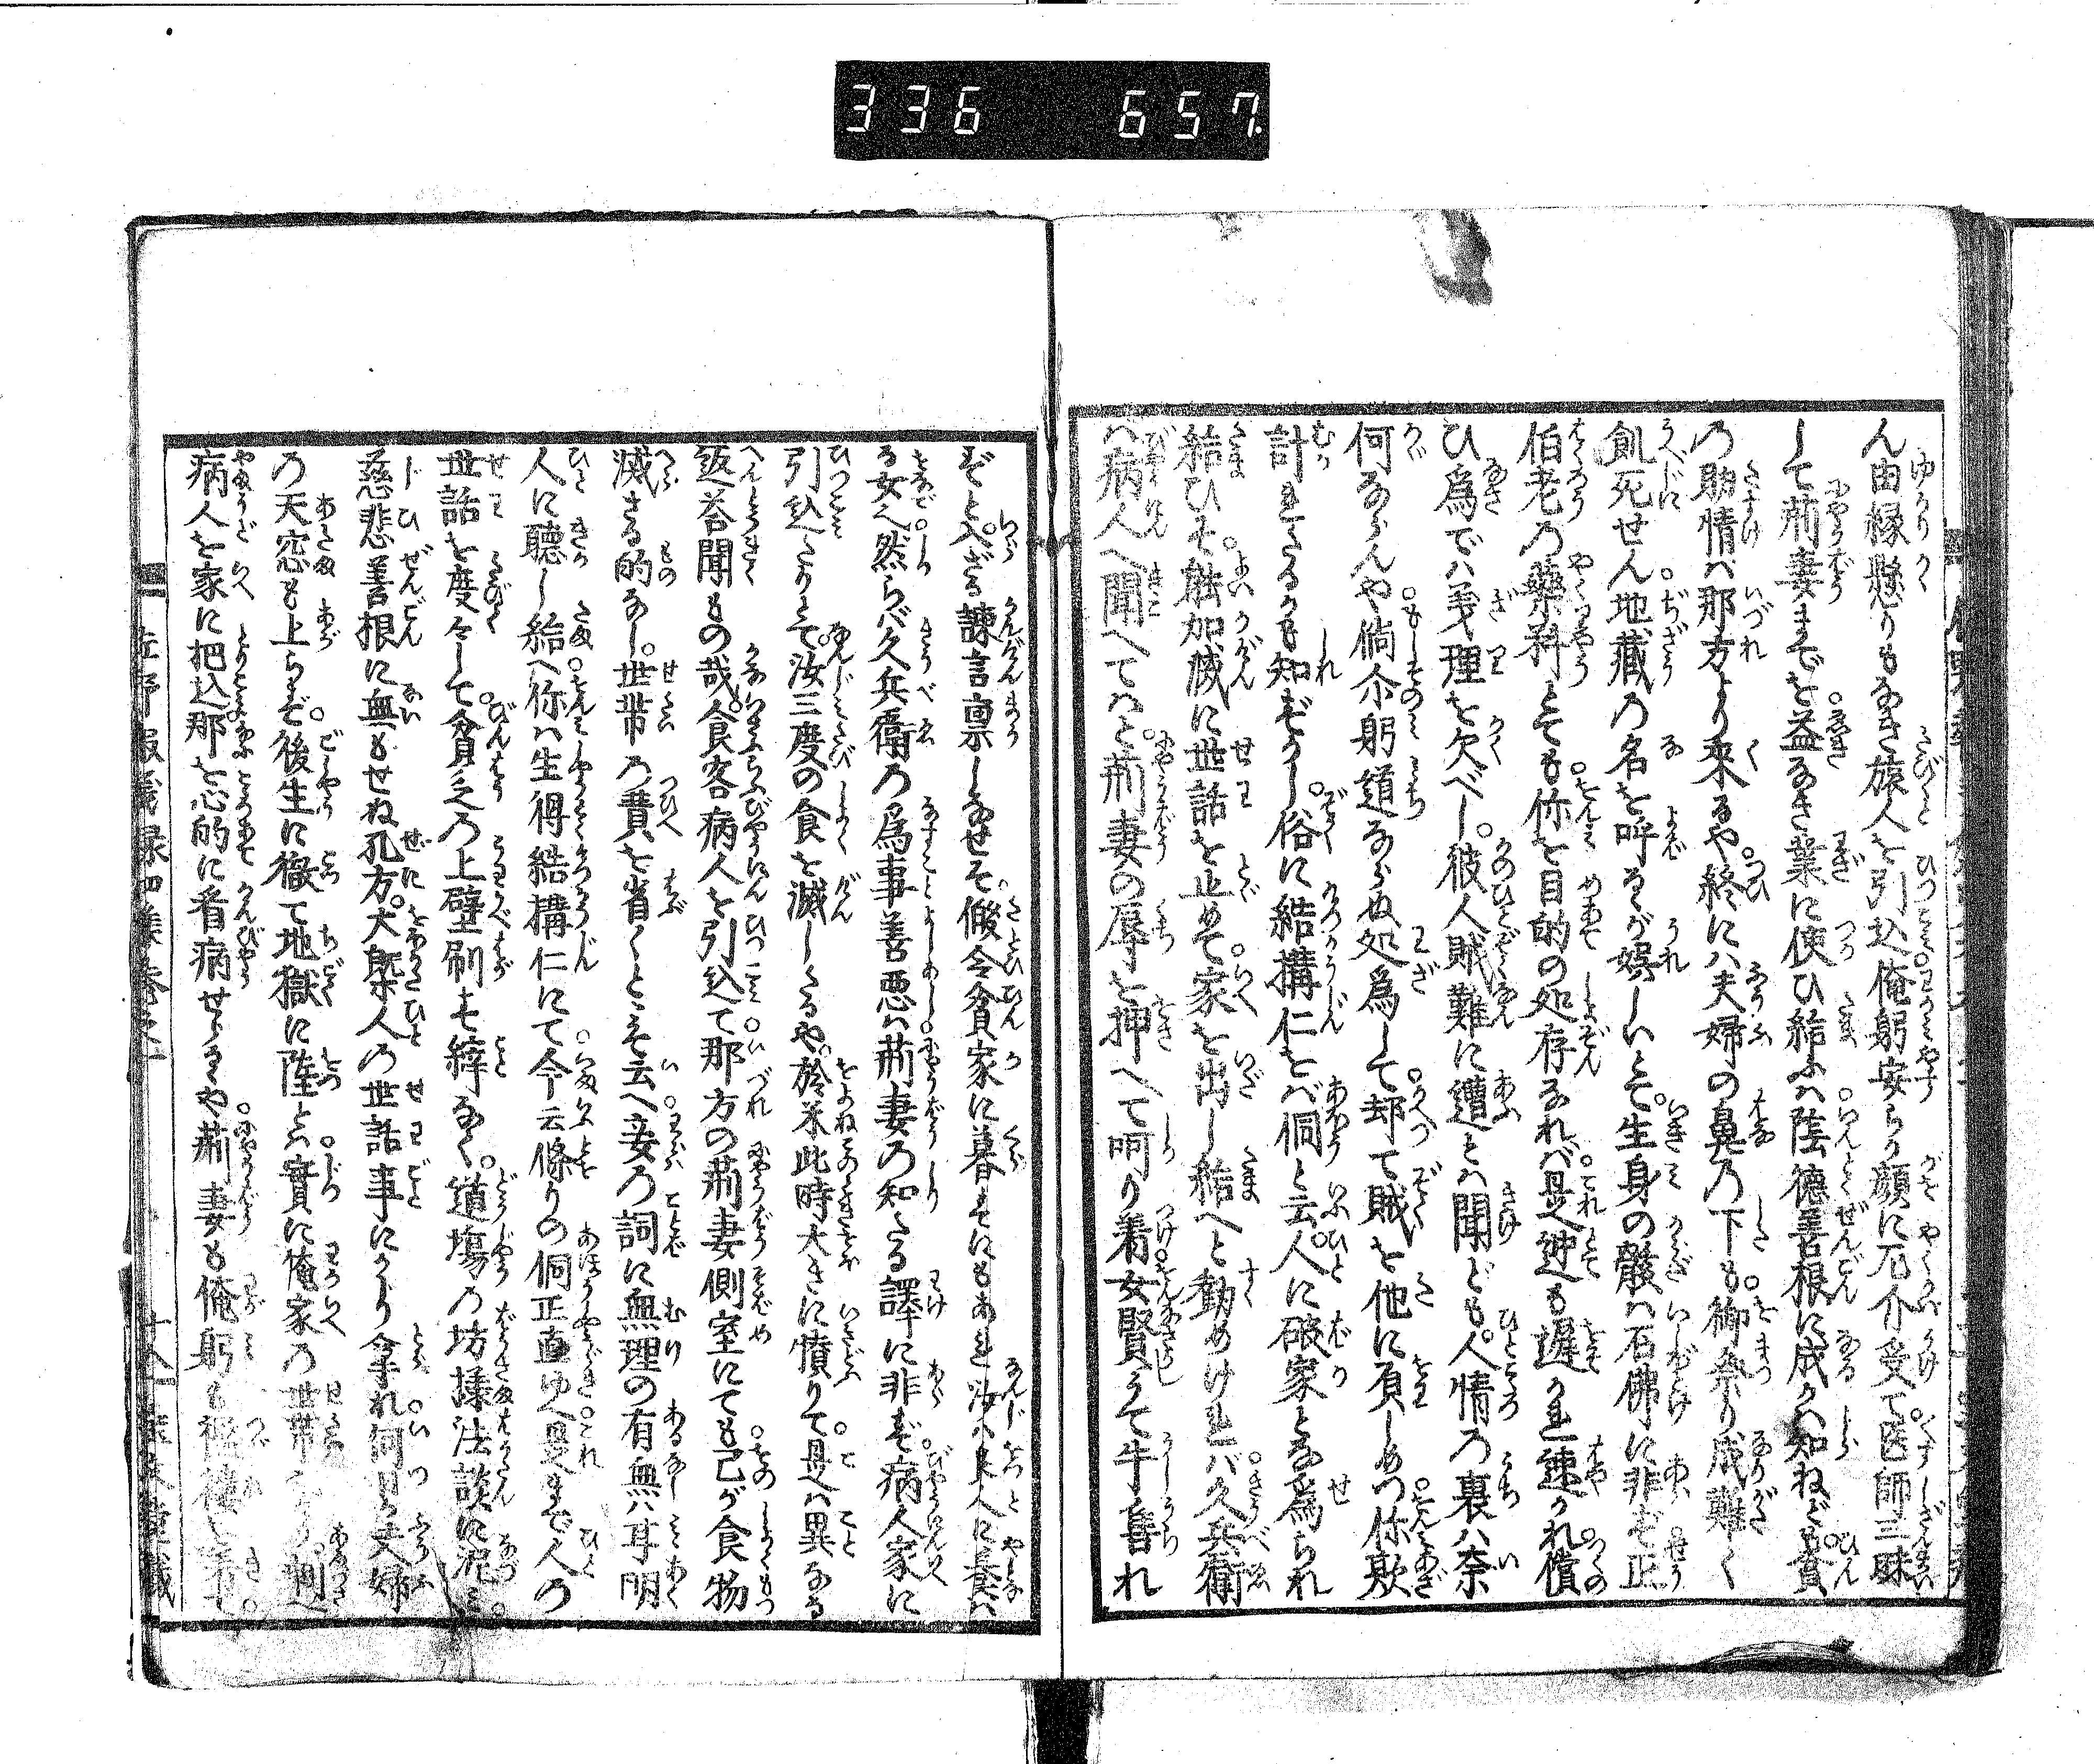 336 657
ん由縁懸りもなき旅人を引込俺躬安らか顔に厄介受て医師三昧
して荊妻までを益なき業に使ひ給ふハ陰徳善根に成か知ねども貧
の助情ハ那方より来るや終にハ夫婦の鼻の下も御祭り成難く
飢死せん地蔵の名を呼るゝが娯しいとて生身の骸ハ石佛に非ず正
伯老の藥料とても你を目的の処存なれバ是迚も遅かれ速かれ償
ひ爲でハ義理を欠べし彼人賊難に遭とハ聞ども人情の裏ハ奈
何ならんや倘尒躬道ならぬ処爲して却て賊を他に負しめつ你欺
計れたるかも知ずかし俗に結構仁をバ侗と云人に破家とな爲られ
給ひそ能加减に世話を止めて家を出し給へと勧めけれバ久兵衛
ハ病人へ聞へてハと荊妻の辱を押へて呵り着女賢うて牛售れ
ずと入ざる諫言禀しなせそ假令貧家に暮すにもあれ汝ハ夫人に養ハ
る女へ然らバ久兵衛の爲事善悪ハ荊妻の知たる譯に非ず病人家に
引込たりとて汝三度の食を减したるや於米此時大きに憤りて是ハ異なる
返答聞もの哉食客病人を引込て那方の荊妻側室にても己が食物
减さる的なし世帯の費を省くとこそ云へ妾の詞に無理の有無ハ耳明
人に聴し給へ你ハ生得結構仁にて今云條りの侗正直ゆへ是まで人の
世話を度々して貧乏の上壁刷も又絳なく道塲の坊揉法談に泥み
慈悲善根に無もせね孔方大槩人の世話事にかゝり拿れ何日も夫婦
の天窓も上らず後生に徹て地獄に陸とハ實に俺家の世帯なり剰
病人を家に把込那を忘的に看病せらるゝや荊妻も俺躬も襤褸を着て